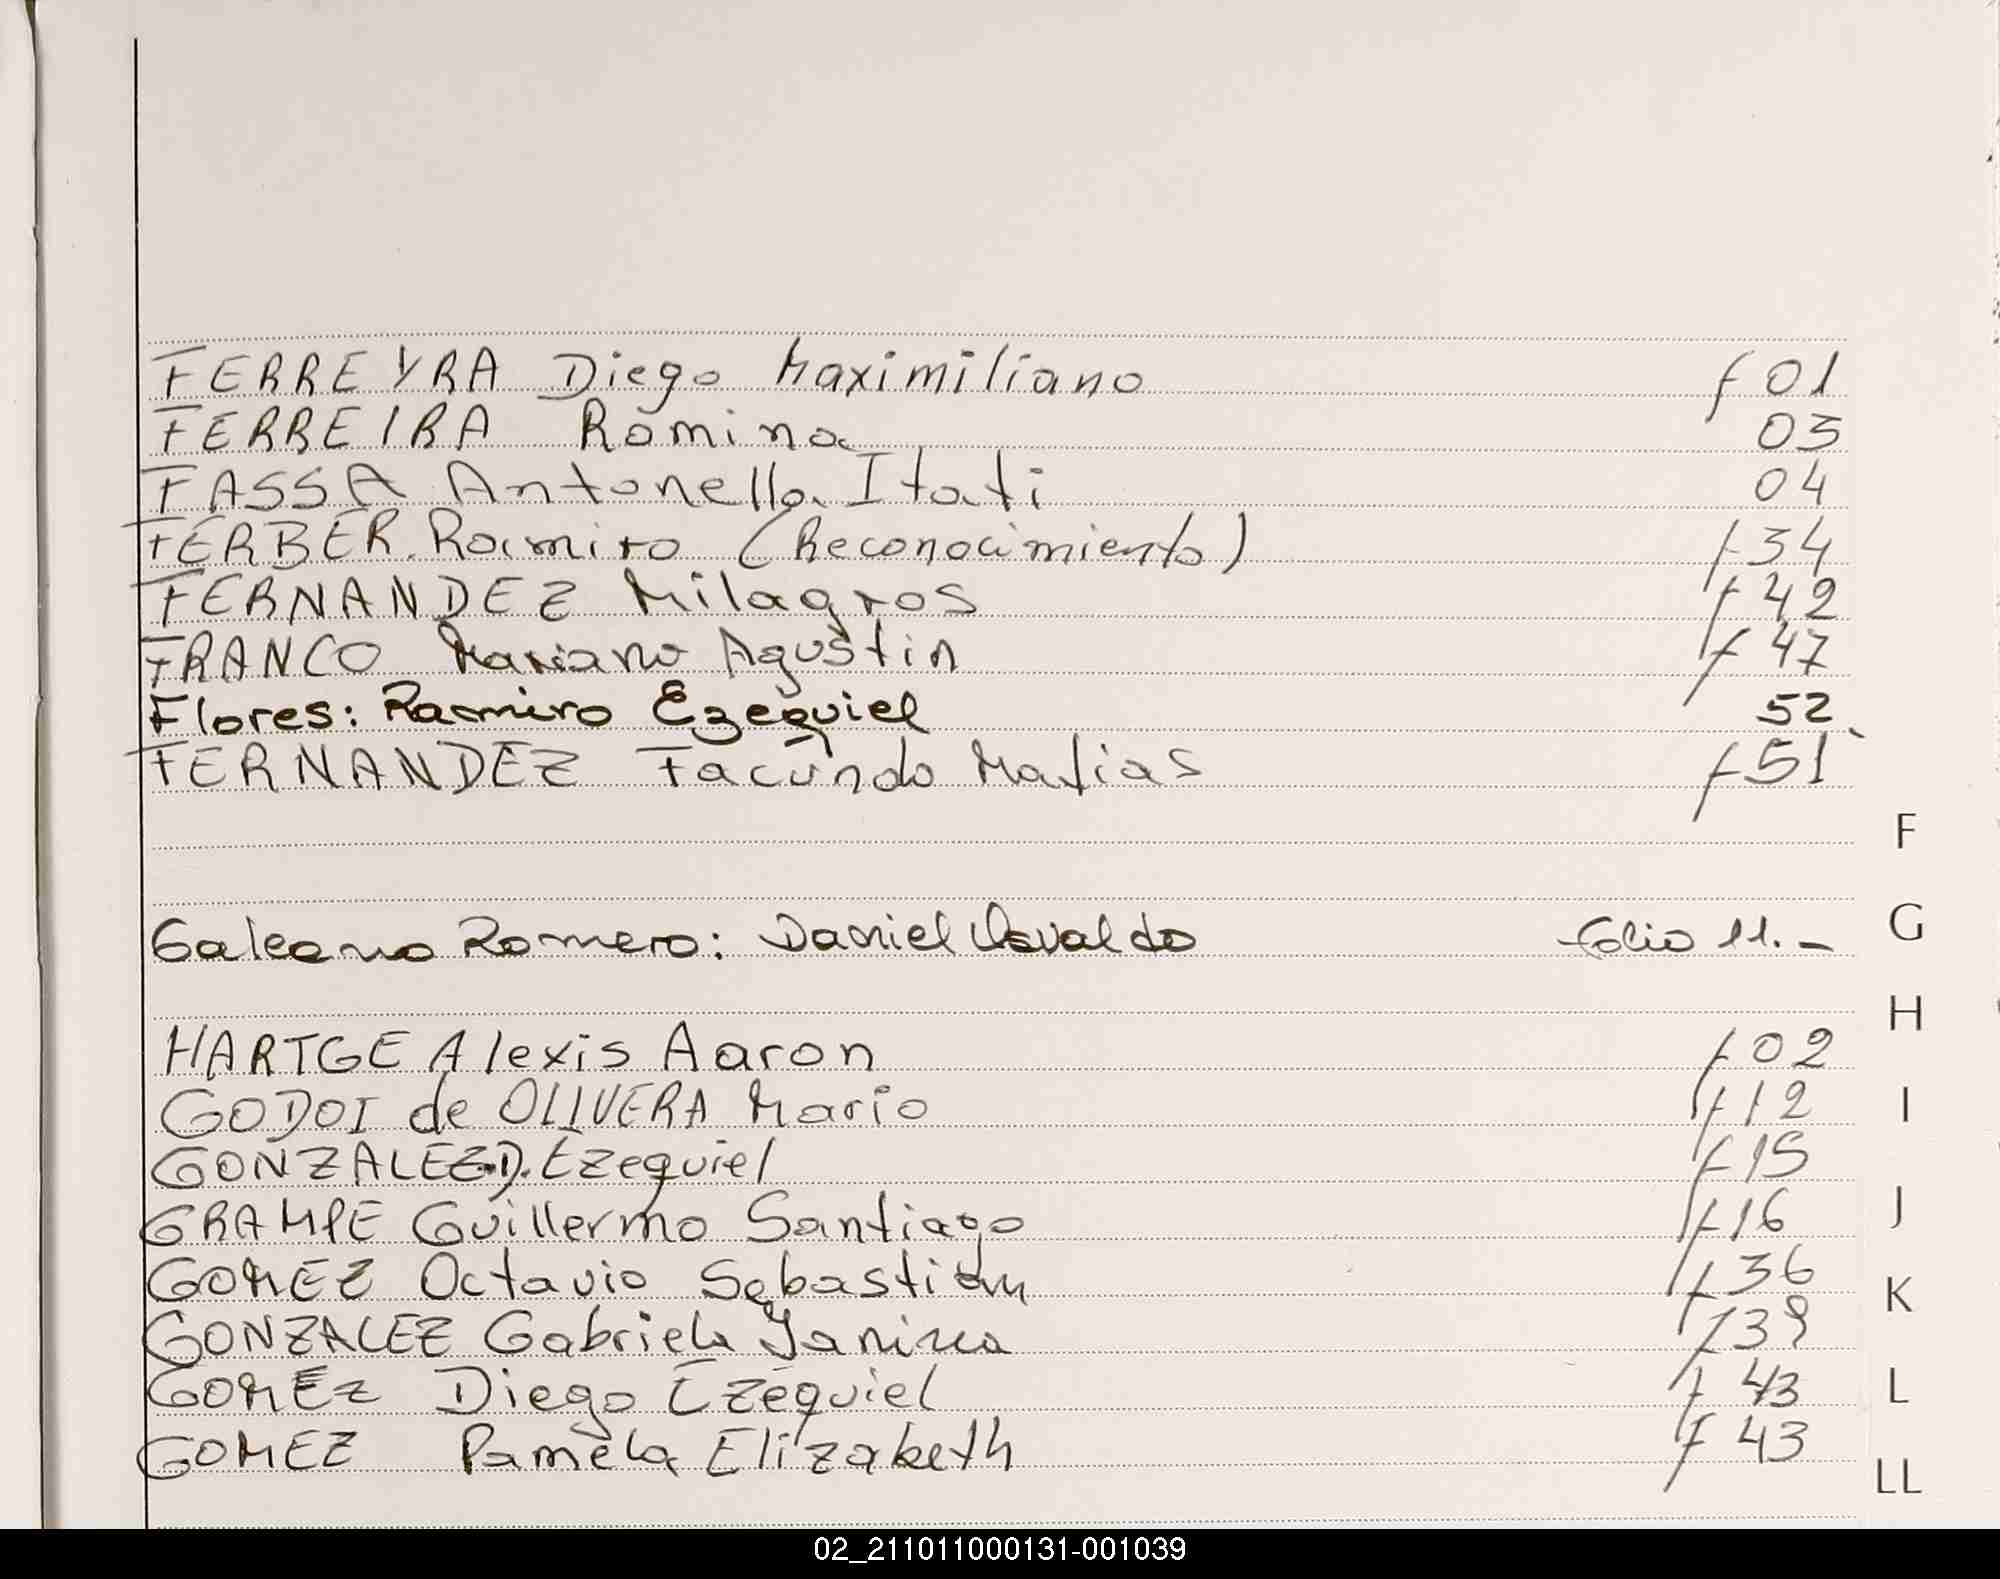 FERREYRA Diego Maximiliano f 01
FERREIRA Romina 03
FASSA Antonella Itati 04
FERBER Ramiro (Reconocimiento) f 34
FERNANDEZ Milagros f 42
FRANCO Mariano Agustin f 47
Flores: Ramiro Ezequiel 52
FERNANDEZ Facundo Matias f 51
F
Galeano Romero: Daniel Osvaldo folio 11.-
G
H
HARTGE Alexis Aaron f 02
GODOI de OLIVERA Mario f 12
I
GONZALEZ D. Ezequiel f 15
GRAMPE Guillermo Santiago f 16
J
GOMEZ Octavio Sebastián f 36
K
GONZALEZ Gabriela Yanina f 39
GOMEZ Diego Ezequiel f 43
L
GOMEZ Pamela Elizabeth f 43
LL
02_211011000131-001039